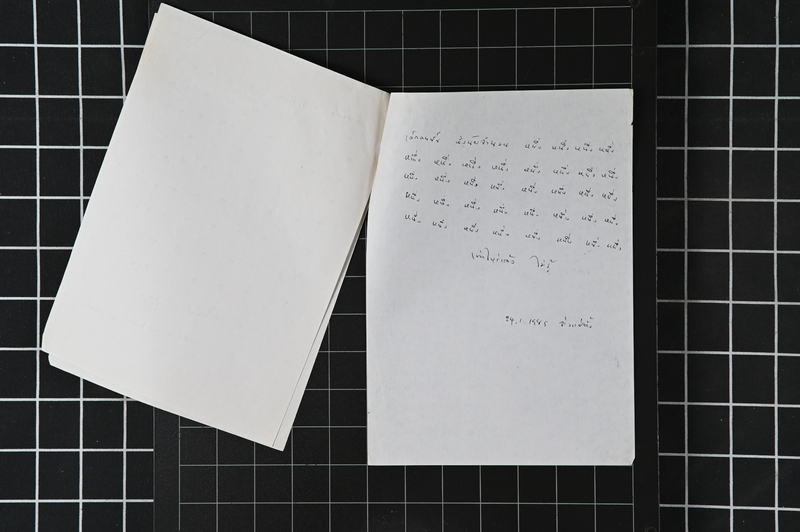 เด็กคนหนึ่ง นั่งนับจำนวน หนึ่ง, หนึ่ง, หนึ่ง, หนึ่ง,
หนึ่ง, หนึ่ง, หนึ่ง, หนึ่ง, หนึ่ง, หนึ่ง, หนึ่ง, หนึ่ง,
หนึ่ง, หนึ่ง, หนึ่ง, หนึ่ง, หนึ่ง, หนึ่ง, หนึ่ง, หนึ่ง,
หนึ่ง, หนึ่ง, หนึ่ง, หนึ่ง, หนึ่ง, หนึ่ง, หนึ่ง, หนึ่ง,
หนึ่ง, หนึ่ง, หนึ่ง, หนึ่ง, หนึ่ง, หนึ่ง, หนึ่ง, หนึ่ง,
เท่าไหร่แล้ว ไม่รู้